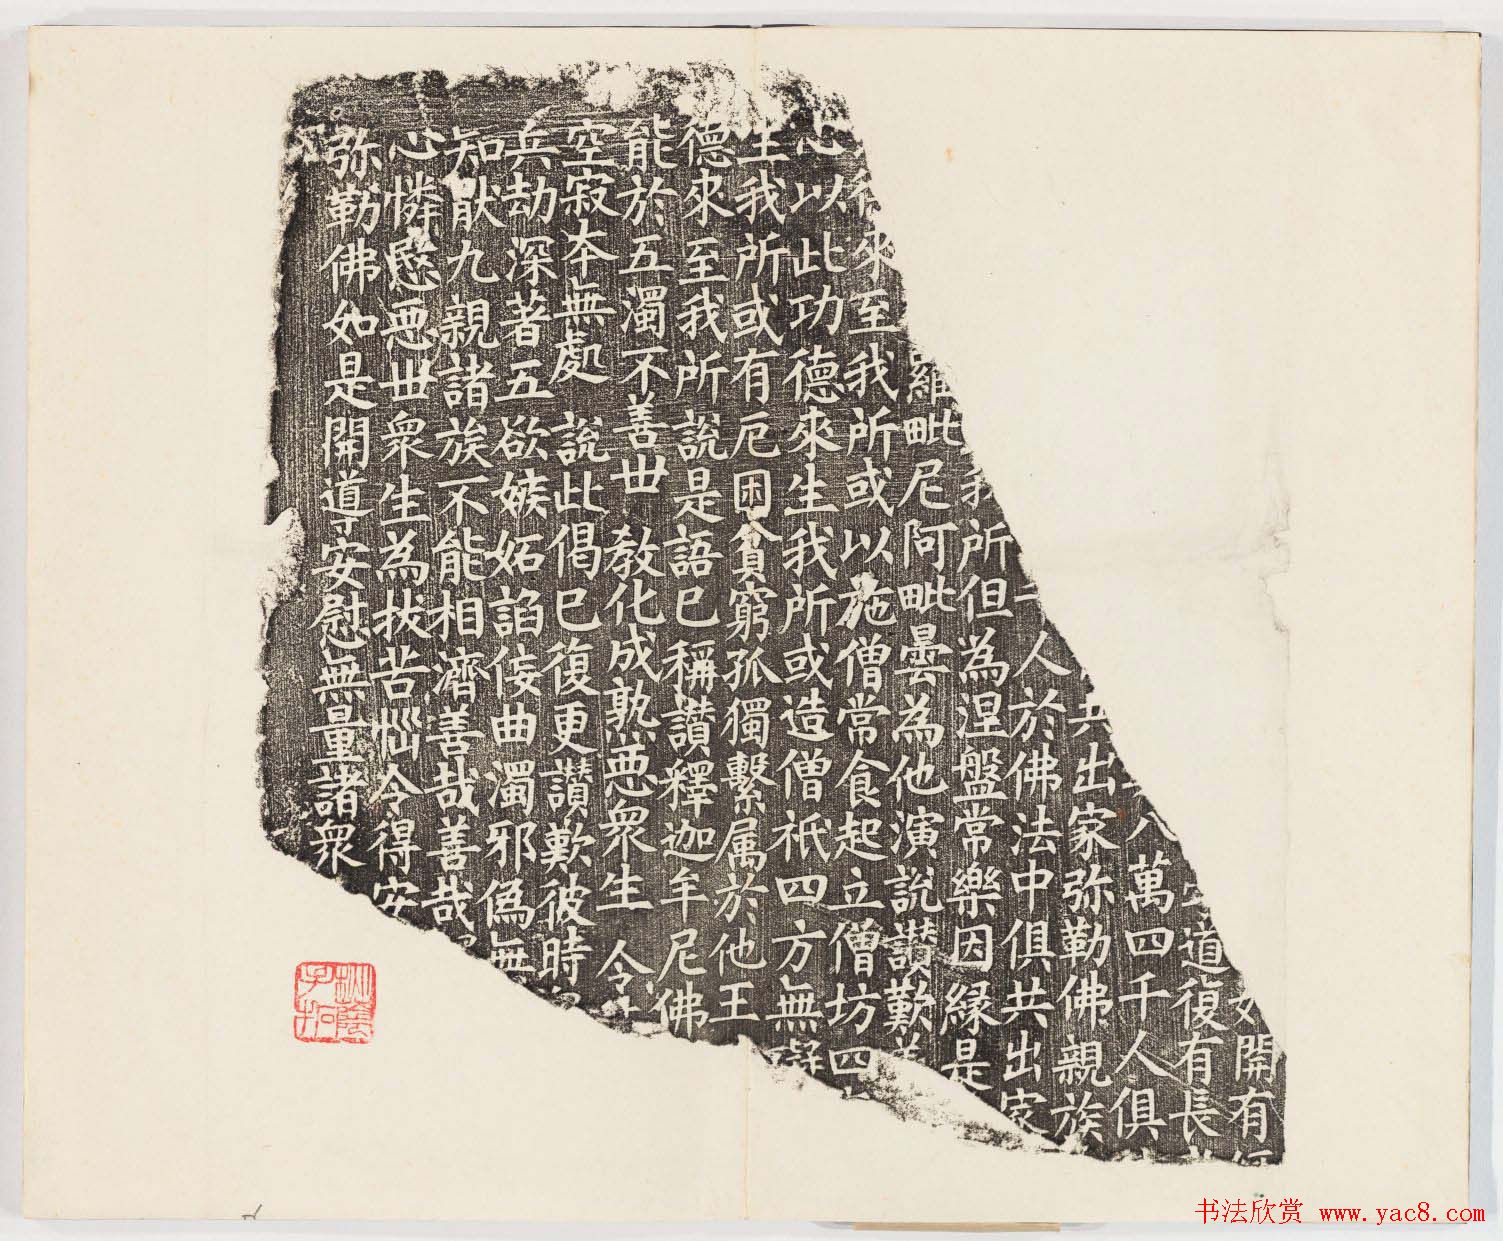 如開有
道復有長
八萬四千人俱
共出家弥勒佛親族
人於佛法中俱共出家
我所但為涅盤常樂因緣是
羅毗尼阿毗曇為他演說讚歎
來至我所或以施僧常食起立僧坊四
心以此功德來生我所或造僧祇四方無礙
生我所或有厄困貧窮孤獨繫属於他王
德來至我所說是語已稱讚釋迦牟尼佛
能於五濁不善世 教化成熟惡眾生 令
空寂本無處 說此偈已復更讚歎彼時
兵劫深著五欲嫉妬諂佞曲濁邪偽無
知猒九親諸族不能相濟善哉善哉
心憐愍惡世眾生為拔苦惱令得安
弥勒佛如是開導安慰無量諸眾
书法欣赏 www.yac8.com